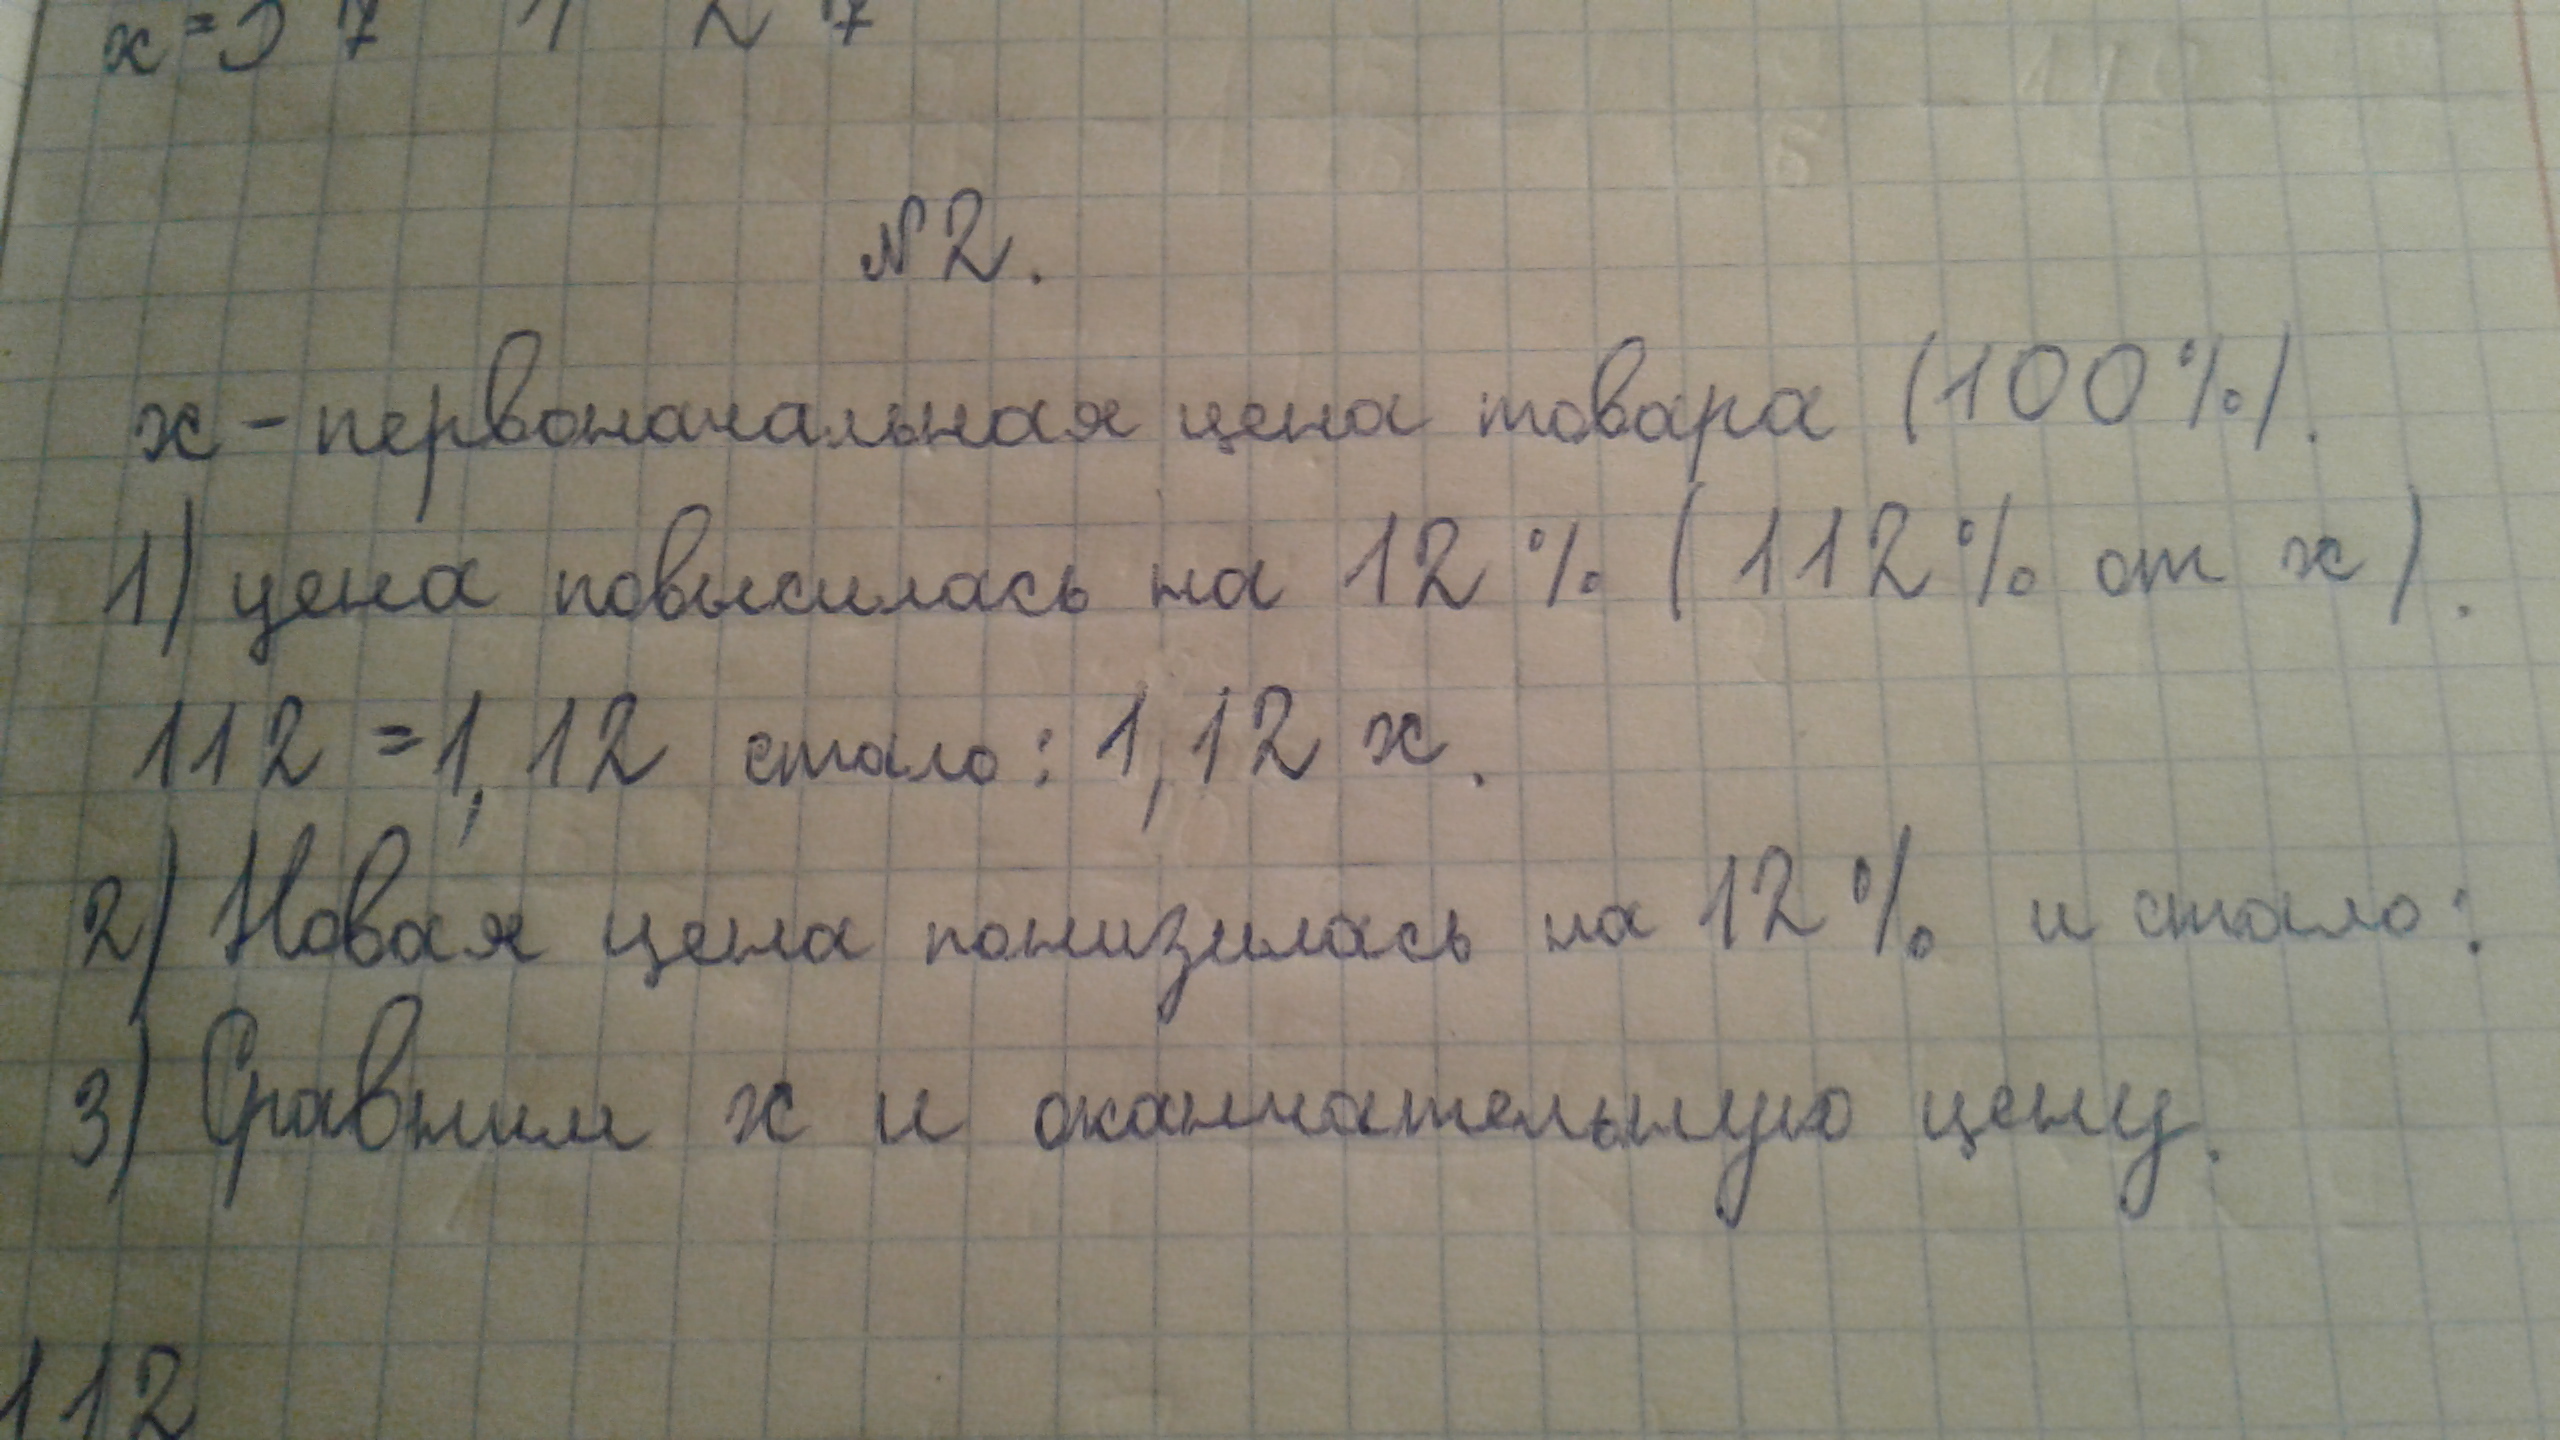 №2.
х - первоначальная цена товара (100%).
1) цена повысилась на 12% (112% от х).
112 = 1,12 стало: 1,12 х.
2) Новая цена понизилась на 12% и стало:
3) Сравним х и окончательную цену.
112